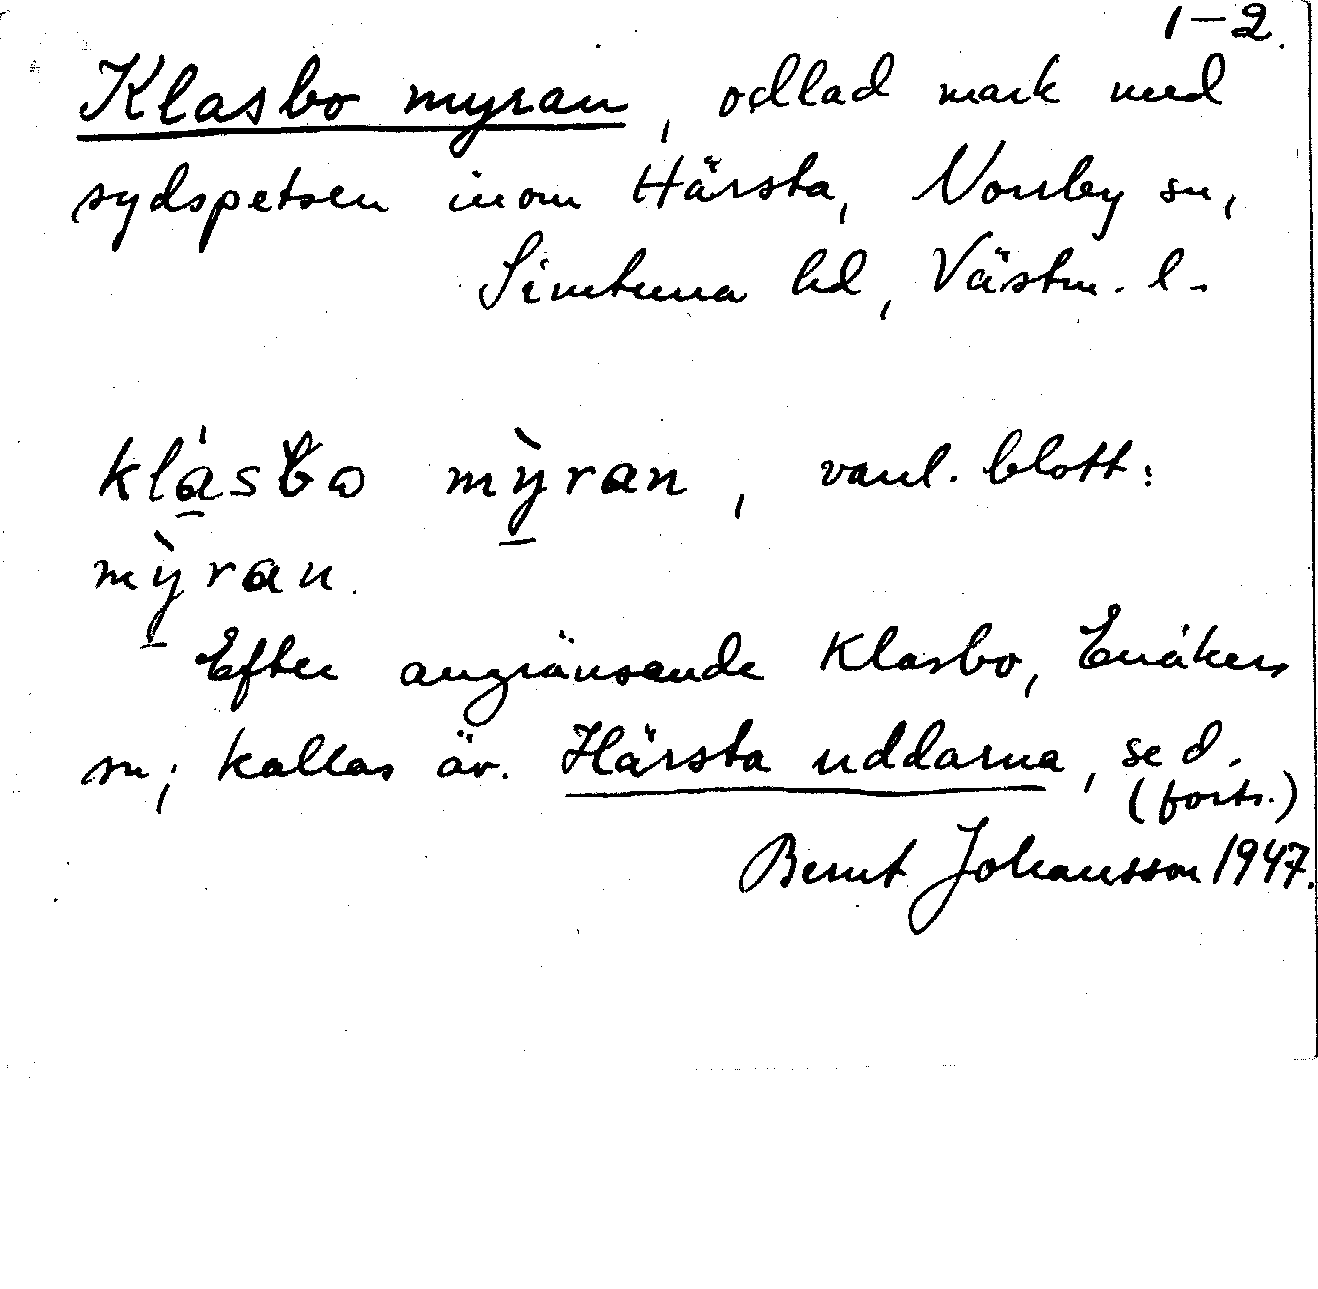 1–2.
Klasbo myran, odlad mark med
sydspetsen inom Härsta, Norrby sn,
Simtuna hd, Västm. l.
klásbω mỳran, vanl. blott:
mỳran.
Efter angränsande Klasbo, Enåkers
sn; kallas äv. Härsta uddarna, se d.
(forts.)
Bernt Johansson 1947.